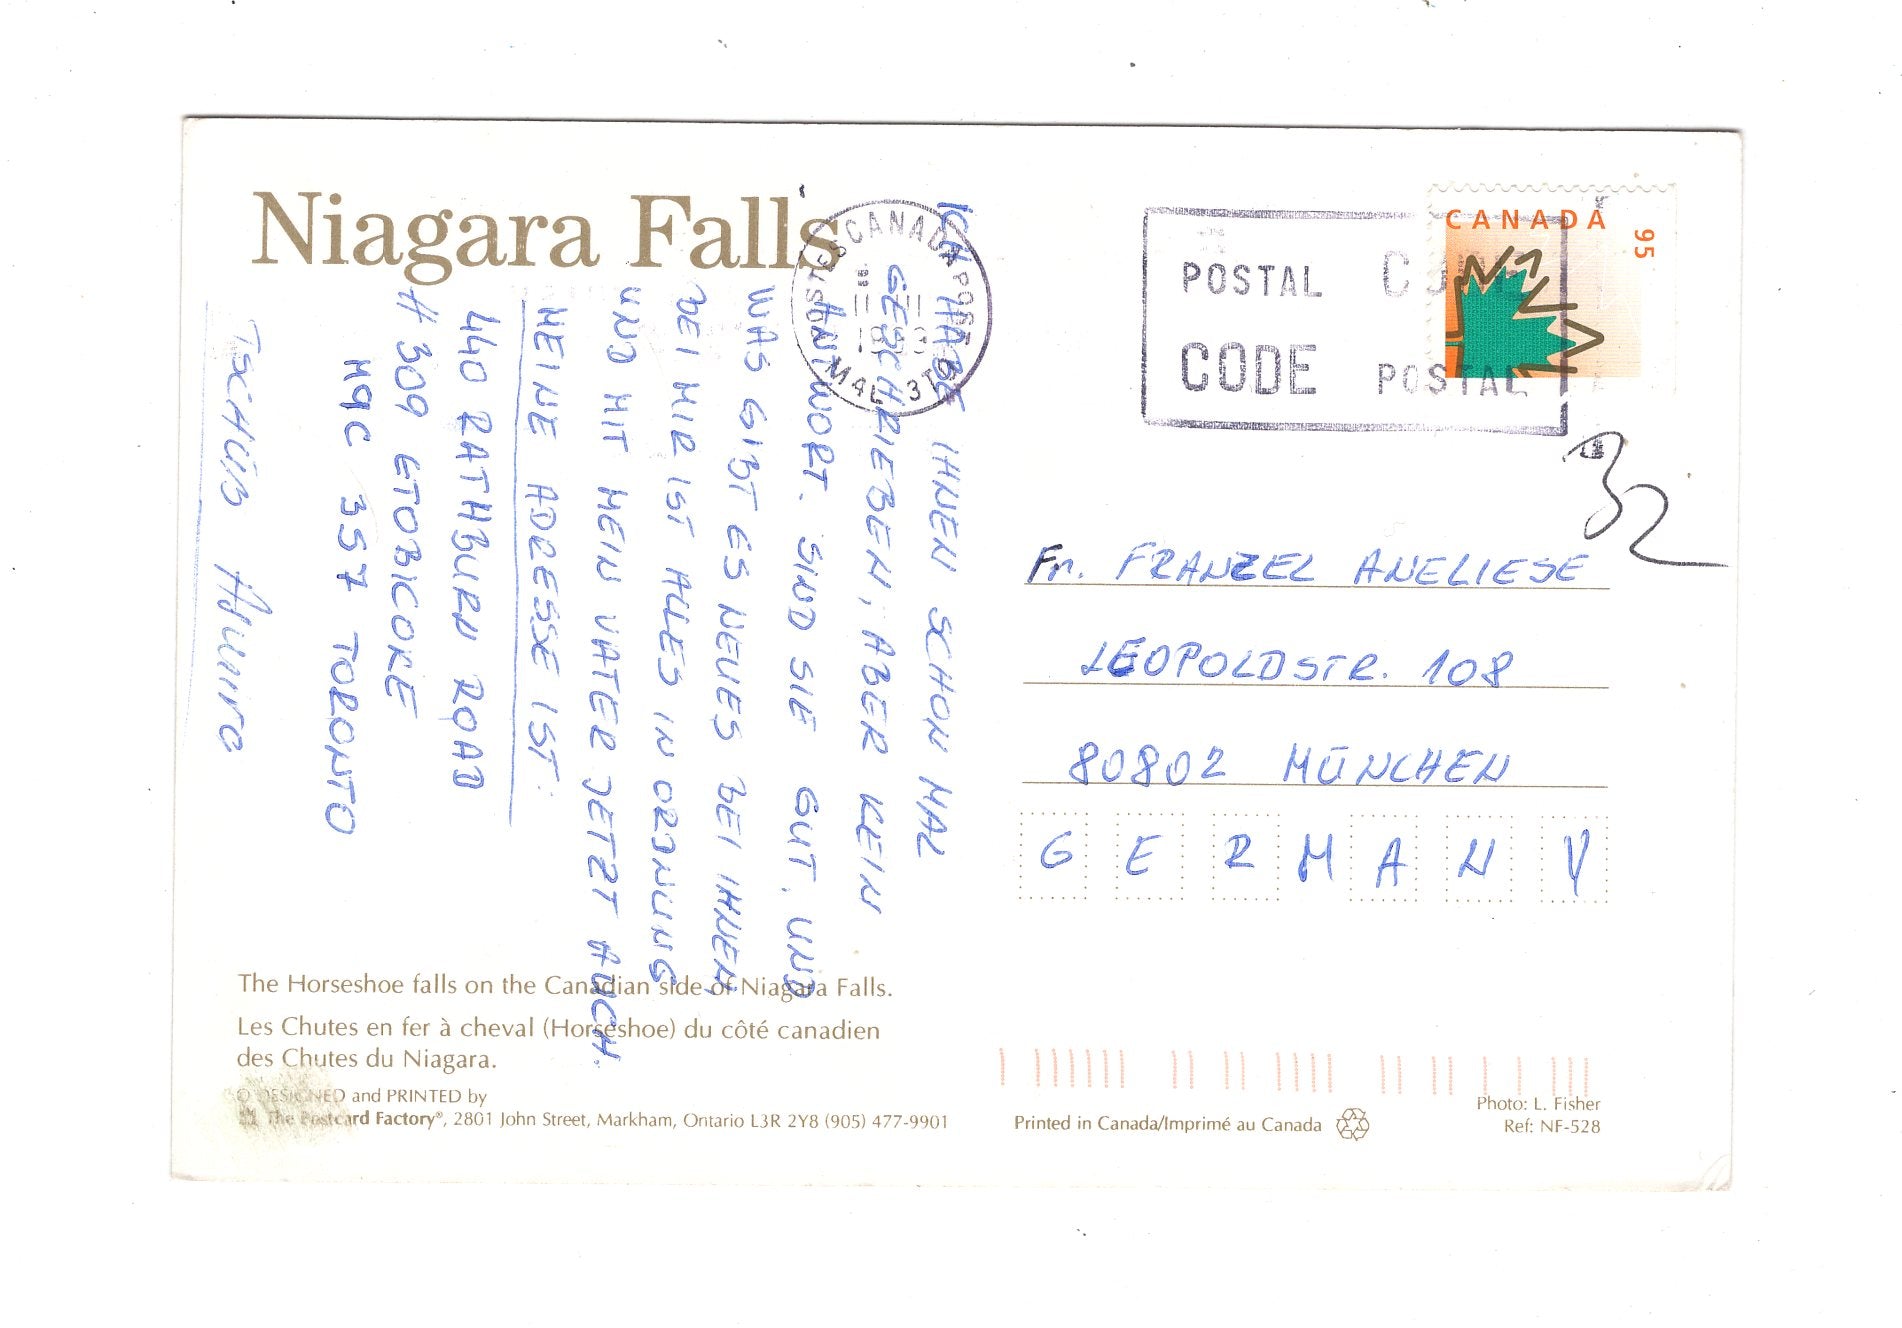 Niagara Falls
ICH HABE IHNEN SCHON MAL
GESCHRIEBEN, ABER KEIN
ANTWORT. SIND SIE GUT, UND
WAS GIBT ES NEUES BEI IHNEN
BEI MIR IST ALLES IN ORDNUNG
UND MIT MEIN VATER JETZT AUCH.
MEINE ADRESSE IST:
440 RATHBURN ROAD
# 309 ETOBICORE
M9C 3S7 TORONTO
TSCHÜß
CANADA POST
M4L 3T0
POSTAL
CODE
CODE
POSTAL
CANADA 95
32
Fr. FRANZEL ANELIESE
LEOPOLDSTR. 108
80802 MÜNCHEN
GERMANY
The Horseshoe falls on the Canadian side of Niagara Falls.
Les Chutes en fer à cheval (Horseshoe) du côté canadien
des Chutes du Niagara.
© DESIGNED and PRINTED by
The Postcard Factory®, 2801 John Street, Markham, Ontario L3R 2Y8 (905) 477-9901
Printed in Canada/Imprimé au Canada
Photo: L. Fisher
Ref: NF-528